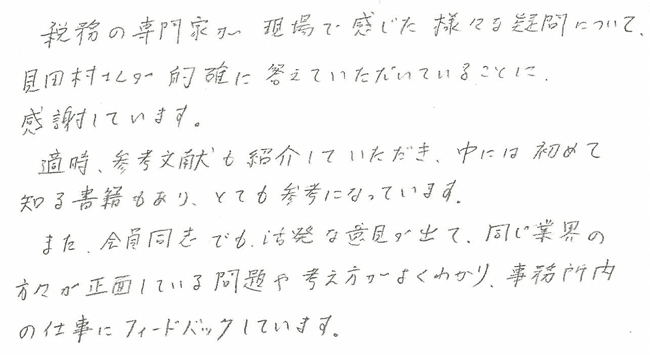 税務の専門家が現場で感じた様々な疑問について、
見田村さんが的確に答えていただいていることに、
感謝しています。
適時、参考文献も紹介していただき、中には初めて
知る書籍もあり、とても参考になっています。
また、会員同志でも、活発な意見が出て、同じ業界の
方々が正面している問題や考え方がよくわかり、事務所内
の仕事にフィードバックしています。